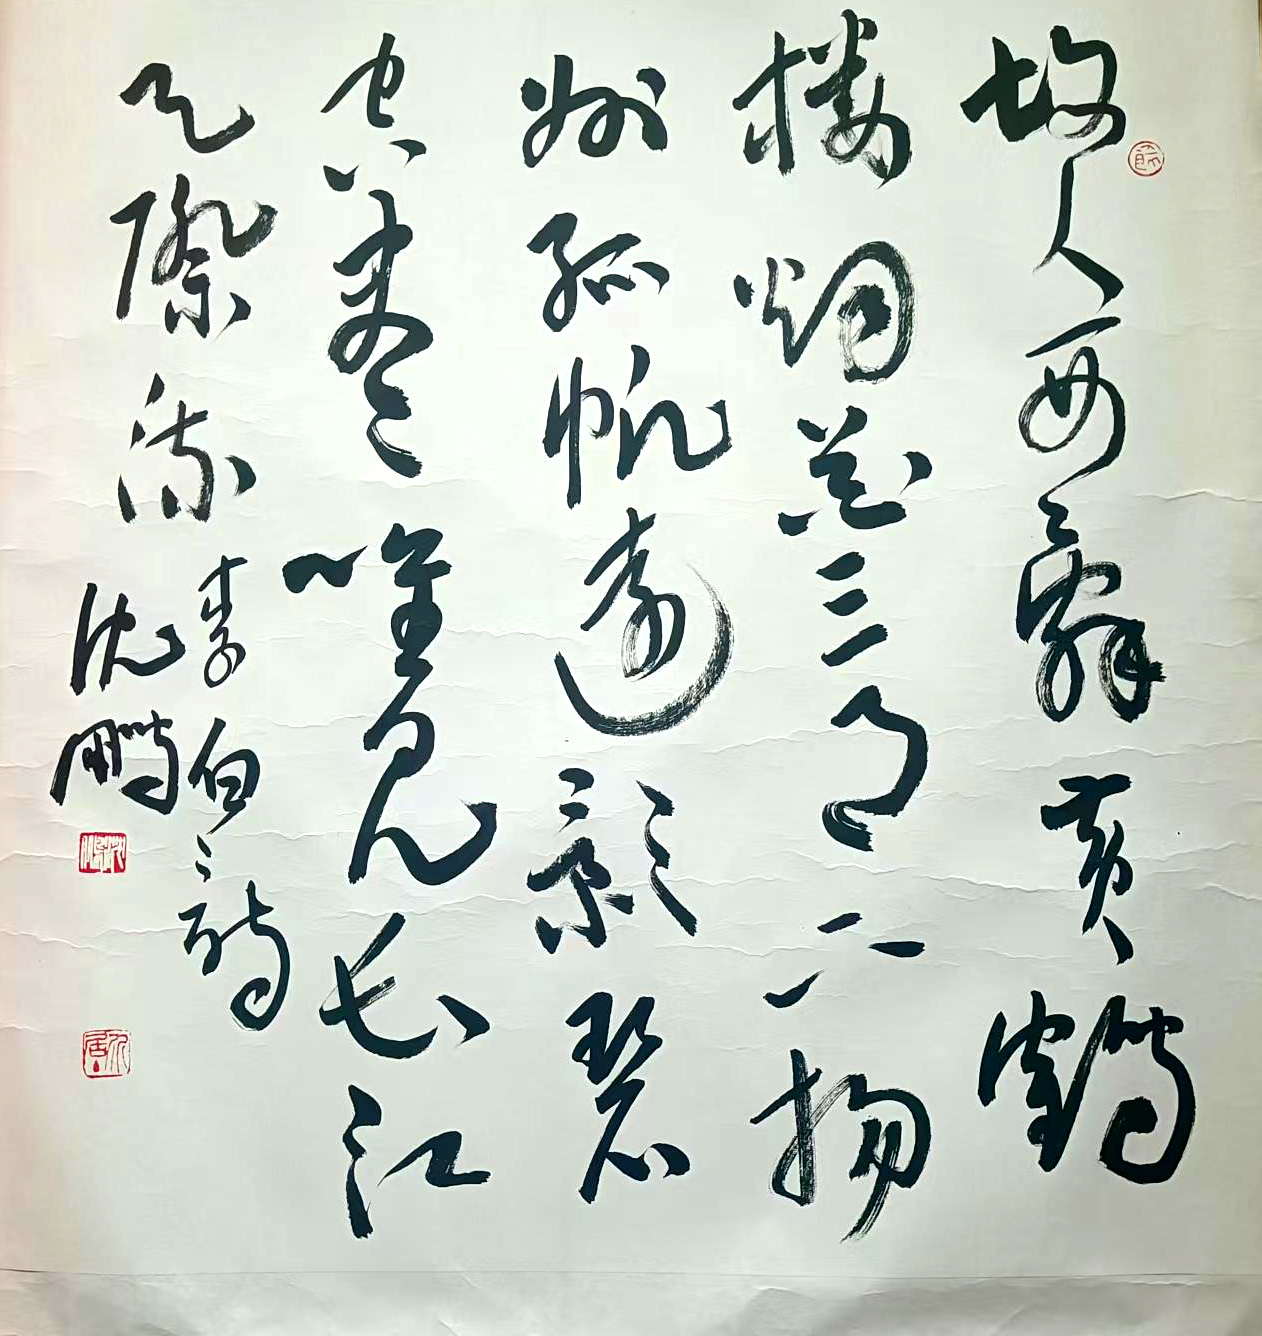 故人西辭黃鶴
樓烟花三月下揚
州孤帆遠影碧
空盡唯見長江
天際流
李白詩
沈鵬
沈鵬